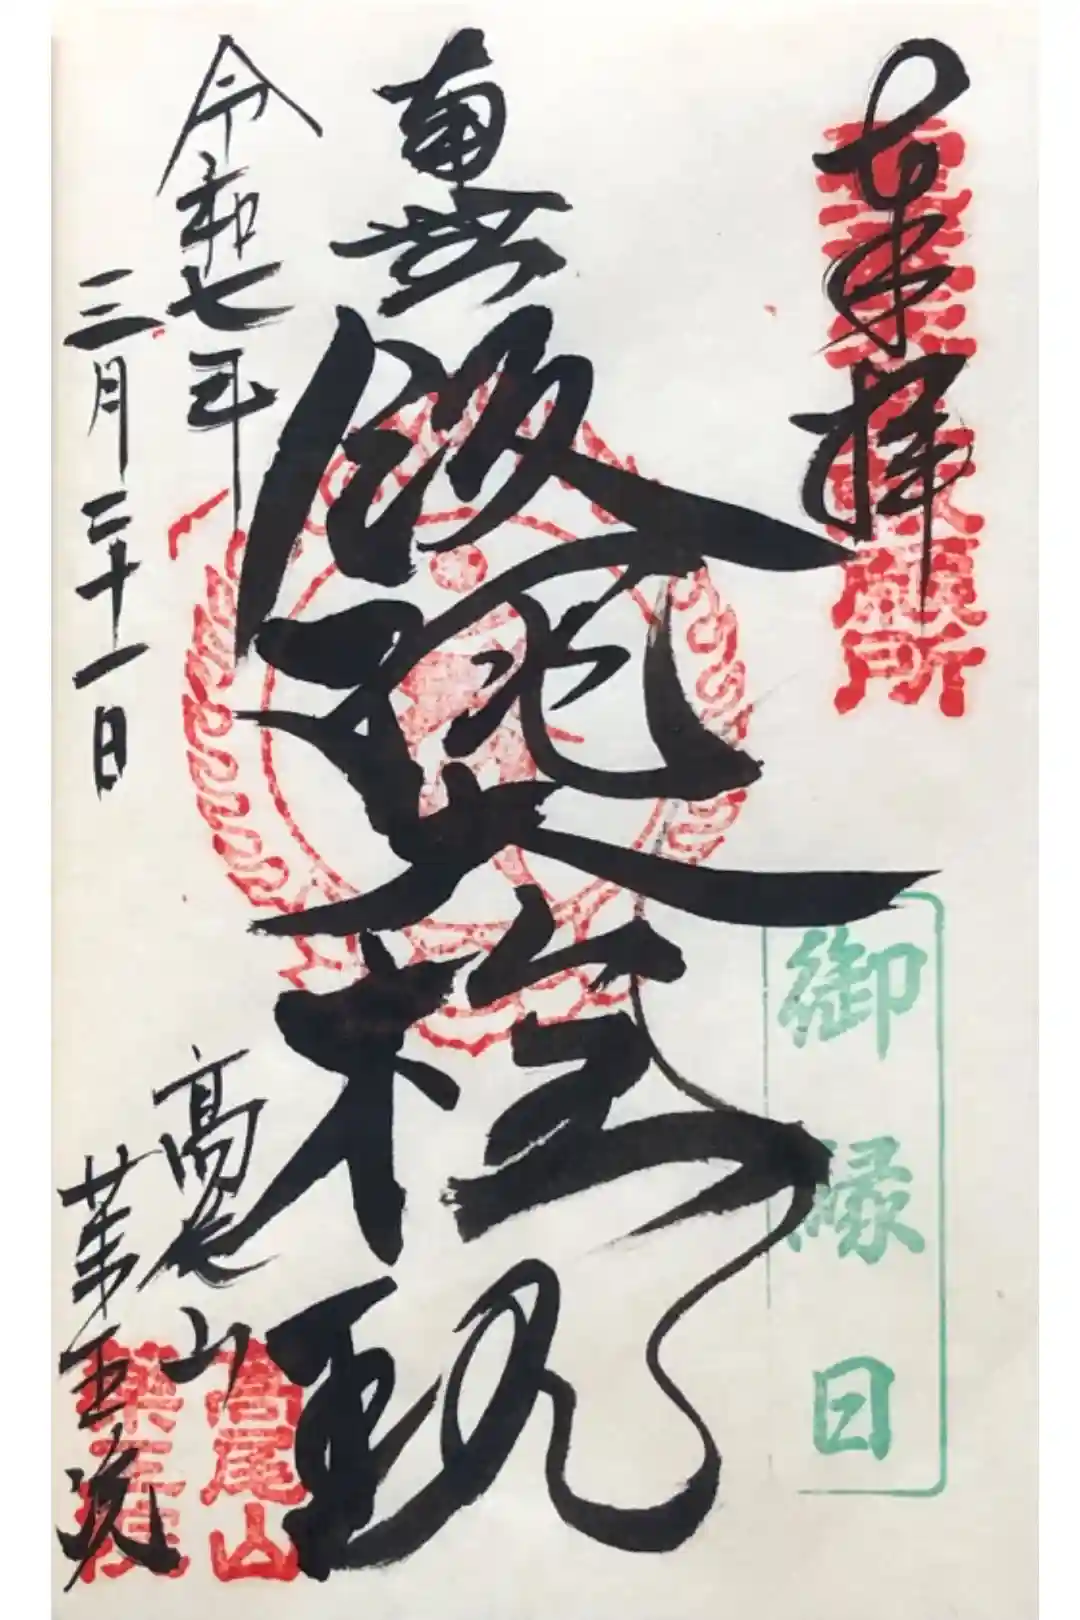 奉拝
御縁日
南無
飯縄大権現
令和七年
三月二十一日
高尾山
薬王院
高尾山
薬王院